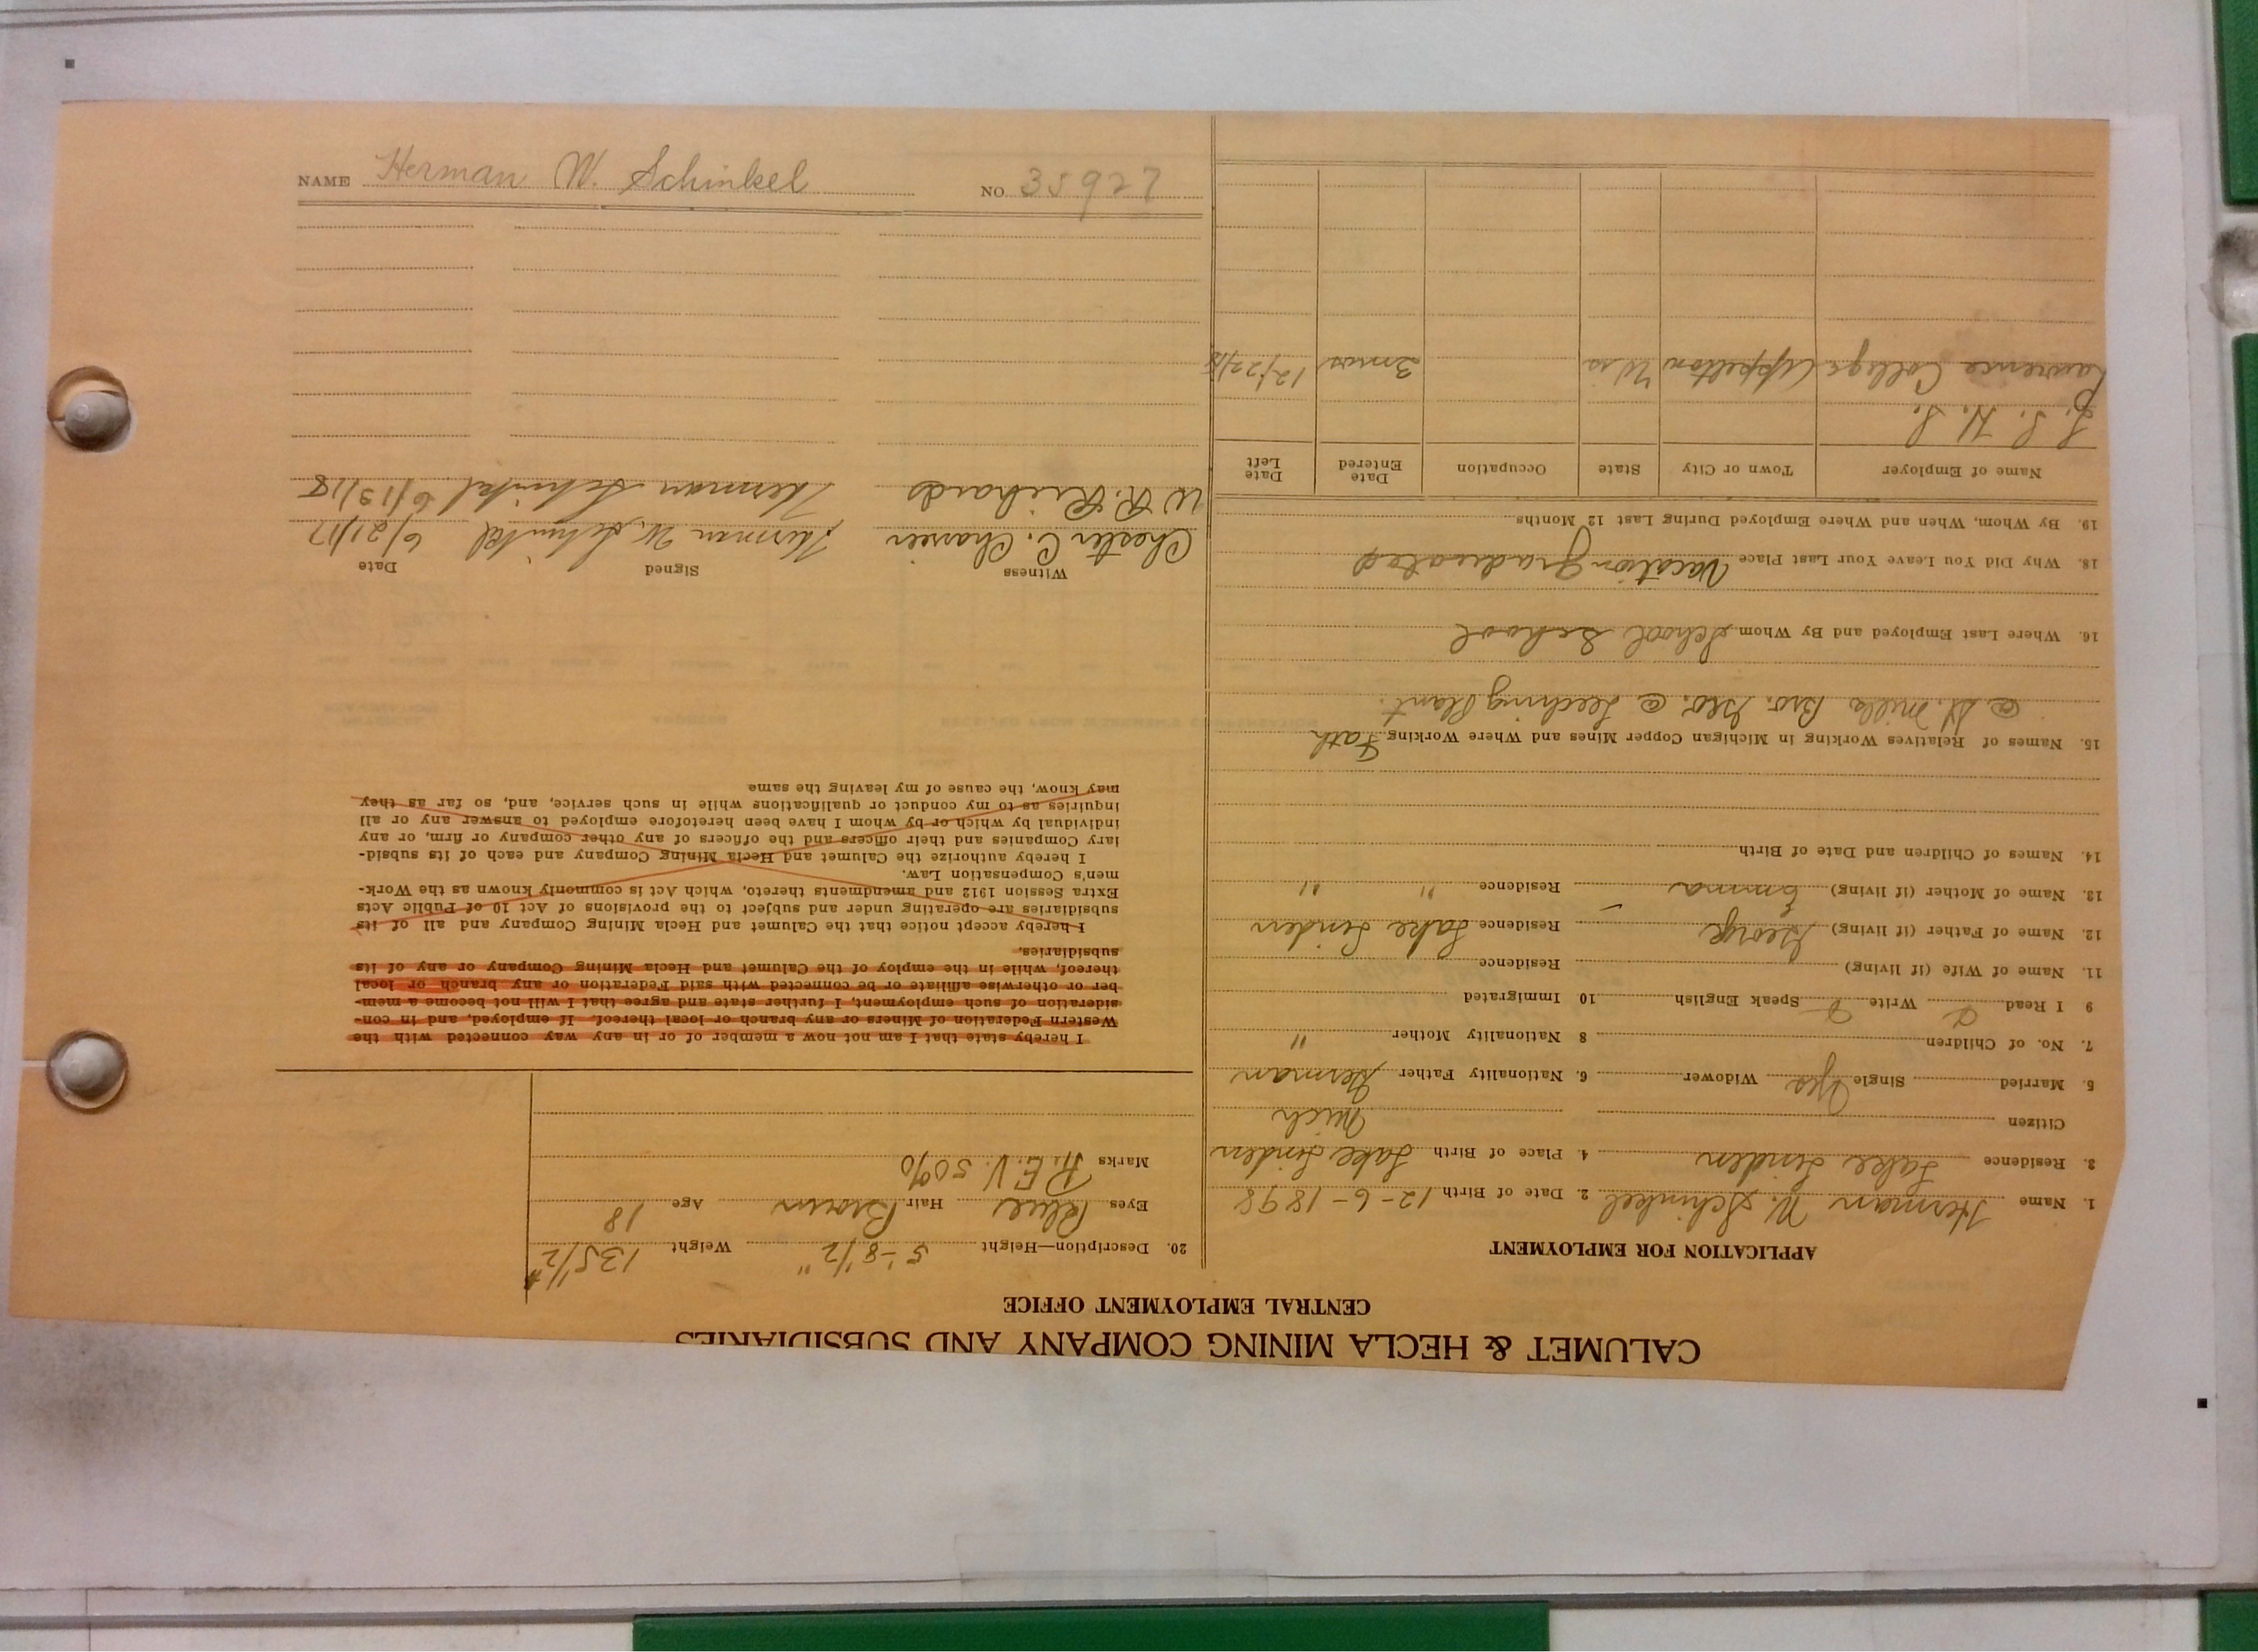 CALUMET & HECLA MINING COMPANY AND SUBSIDIARIES
CENTRAL EMPLOYMENT OFFICE
APPLICATION FOR EMPLOYMENT
1. Name Herman W. Schinkel 2. Date of Birth 12-6-1898
3. Residence Lake Linden 4. Place of Birth Lake Linden
Citizen Mich
5. Married Single Yes Widower 6. Nationality Father German
7. No. of Children 8 Nationality Mother "
9 I Read Write Speak English 10 Immigrated
11. Name of Wife (if living) Residence
12. Name of Father (if living) George Residence Lake Linden
13. Name of Mother (if living) Emma Residence " "
14. Names of Children and Date of Birth
15. Names of Relatives Working in Michigan Copper Mines and Where Working Fath
@ St. Mills Bro. Geo. @ Leeching Plant.
16. Where Last Employed and By Whom School School
18. Why Did You Leave Your Last Place Vacation graduated
19. By Whom, When and Where Employed During Last 12 Months
Name of Employer Town or City State Occupation Date Entered Date Left
L. L. H. S.
Lawrence College Appelton Wis 3 mos 12/22/18
20. Description—Height 5-8 1/2" Weight 135 1/2#
Eyes Blue Hair Brown Age 18
Marks R.E.V. 50%
I hereby state that I am not now a member of or in any way connected with the
Western Federation of Miners or any branch or local thereof. If employed, and in con-
sideration of such employment, I further state and agree that I will not become a mem-
ber or otherwise affiliate or be connected with said Federation or any branch or local
thereof, while in the employ of the Calumet and Hecla Mining Company or any of its
subsidiaries.
I hereby accept notice that the Calumet and Hecla Mining Company and all of its
subsidiaries are operating under and subject to the provisions of Act 10 of Public Acts
Extra Session 1912 and amendments thereto, which Act is commonly known as the Work-
men's Compensation Law.
I hereby authorize the Calumet and Hecla Mining Company and each of its subsid-
iary Companies and their officers and the officers of any other company or firm, or any
individual by which or by whom I have been heretofore employed to answer any or all
inquiries as to my conduct or qualifications while in such service, and, so far as they
may know, the cause of my leaving the same
Witness Signed Date
Chester C. Herman W. Schinkel 6/21/17
W R. Richards Herman Schinkel 6/13/18
NAME Herman W. Schinkel NO. 35927